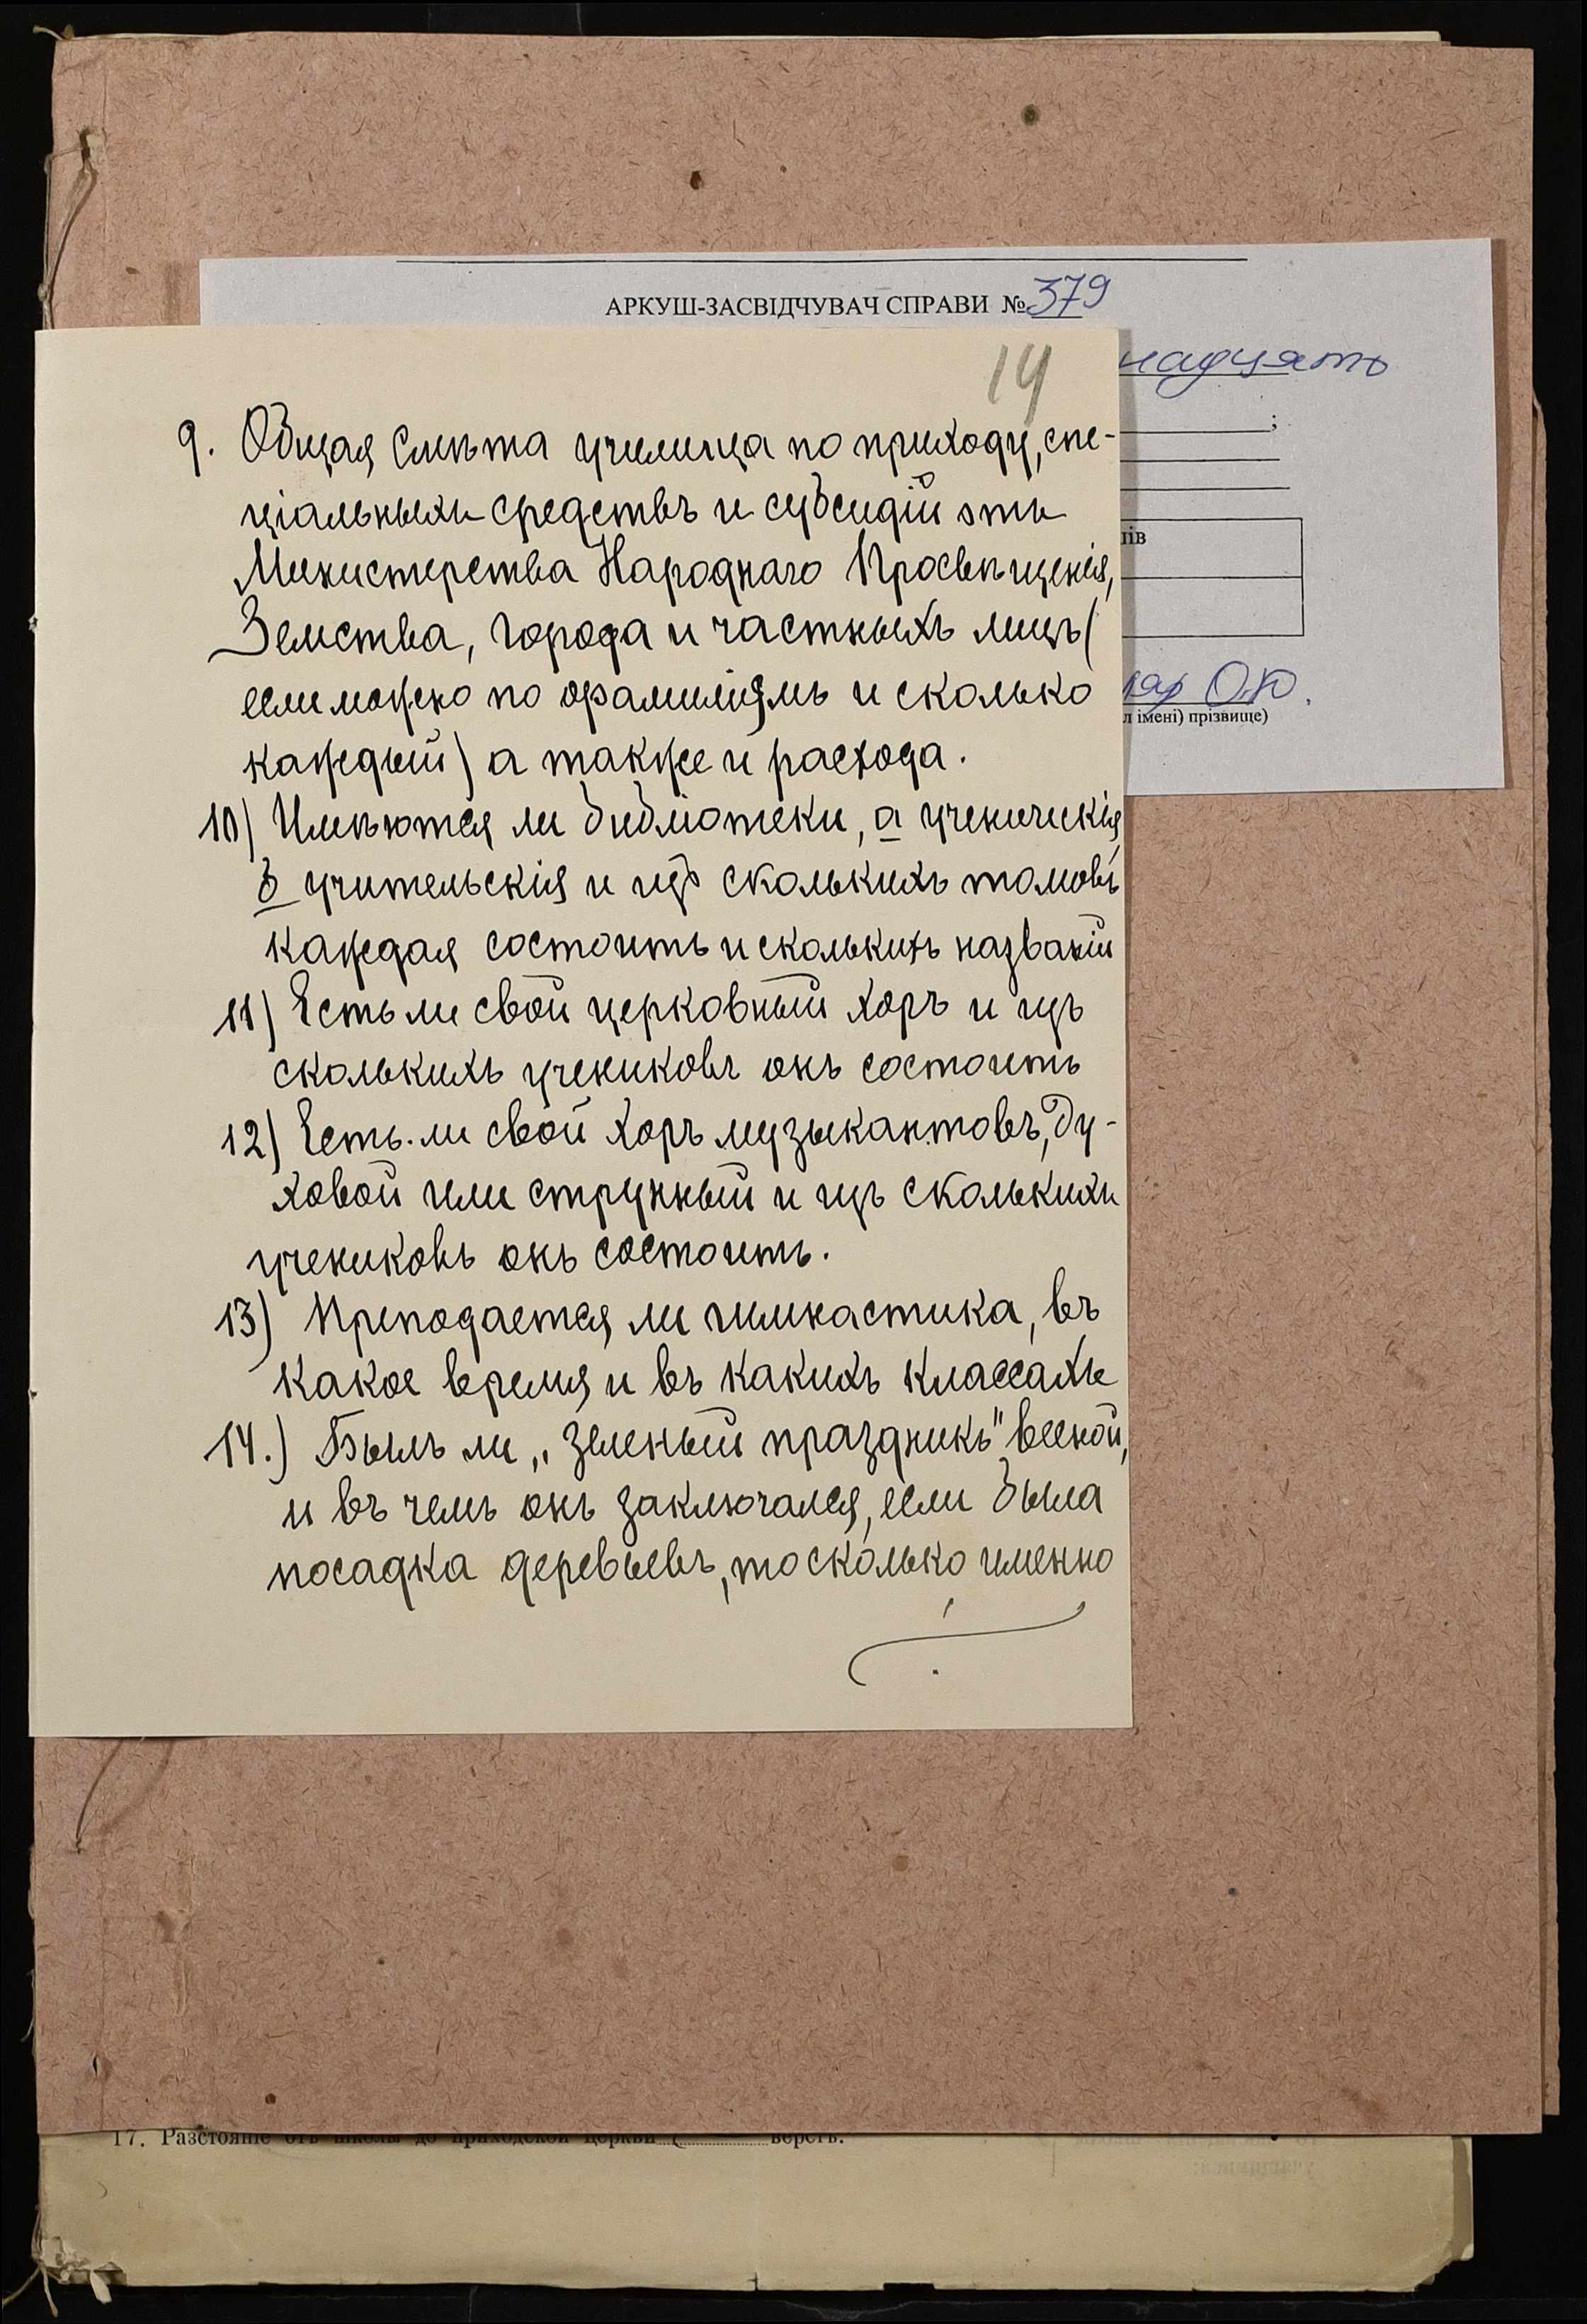 АРКУШ-ЗАСВІДЧУВАЧ СПРАВИ № 379
надцять
;
ів
О.Ю.
імені) прізвище)
14
9. Общая смѣта училища по приходу, спе-
ціальныхъ средствъ и субсидій отъ
Министерства Народнаго Просвѣщенія,
Земства, города и частныхъ лицъ (
если можно по фамиліямъ и сколько
каждый) а также и расхода.
10) Имѣются ли библіотеки, а ученическія,
б учительскія и изъ сколькихъ томовъ
каждая состоитъ и сколькихъ названій
11) Есть ли свой церковный хоръ и изъ
сколькихъ учениковъ онъ состоитъ
12) Есть-ли свой хоръ музыкантовъ, ду-
ховой или струнный и изъ сколькихъ
учениковъ онъ состоитъ.
13) Преподается ли гимнастика, въ
какое время и въ какихъ классахъ
14.) Былъ ли „зеленый праздникъ" весной,
и въ чемъ онъ заключался, если была
посадка деревьевъ, то сколько именно
17. Разстояніе отъ школы до приходской церкви ( верстъ.